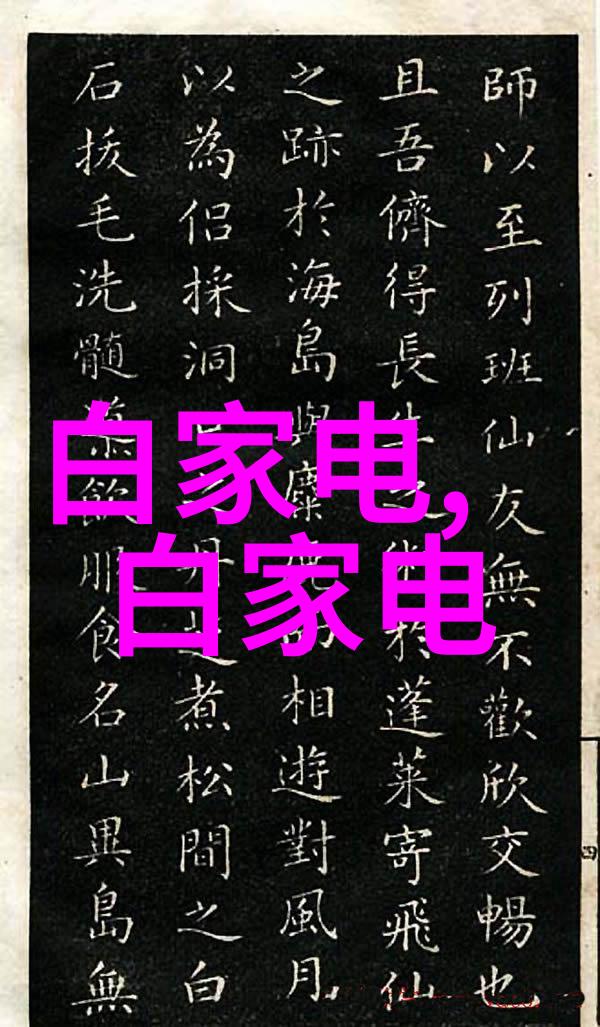 師以至列班仙友無不歡欣交暢也
且吾儕得長生之術於蓬萊寄飛仙
之跡於海島與麋相遊對風月
以為侶採洞之丹煮松間之白
石拔毛洗髓飲服食名山異島無
白家电,
白家电
四